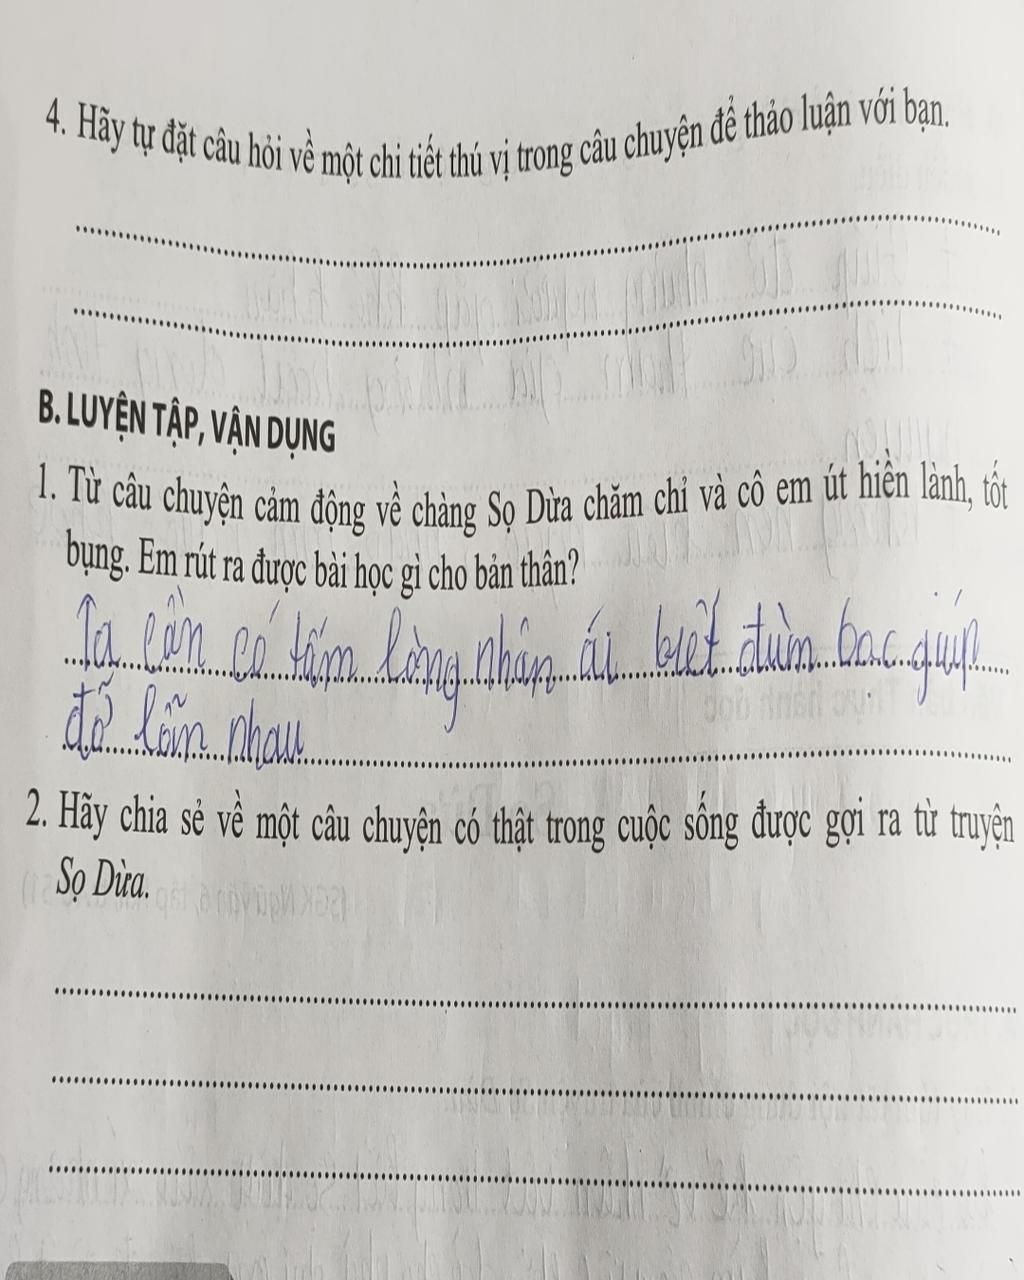 4. Hãy tự đặt câu hỏi về một chi tiết thú vị trong câu chuyện để thảo luận với bạn.
B. LUYỆN TẬP, VẬN DỤNG
1. Từ câu chuyện cảm động về chàng Sọ Dừa chăm chỉ và cô em út hiền lành, tốt
bụng. Em rút ra được bài học gì cho bản thân?
Ta cần có tấm lòng nhân ái biết đùm bọc giúp
đỡ lẫn nhau
2. Hãy chia sẻ về một câu chuyện có thật trong cuộc sống được gợi ra từ truyện
Sọ Dừa.